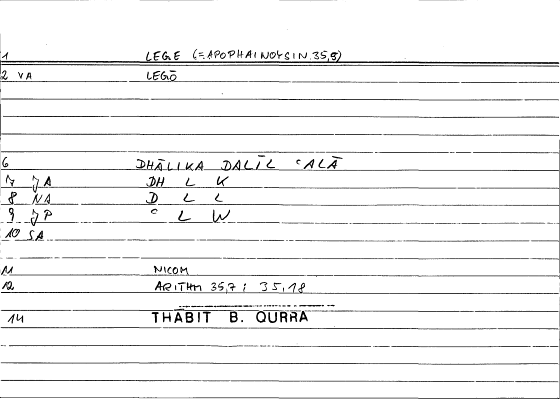 1 LEGE (=APOPHAINOYSIN.35,8)
2 VA LEGŌ
6 DHĀLIKA DALĪL ʿALĀ
7 JA DH L K
8 NA D L L
9 JP ʿ L W
10 SA
11 NICOM
12 ARITHM 35,7 ; 35,18
14 THABIT B. QURRA